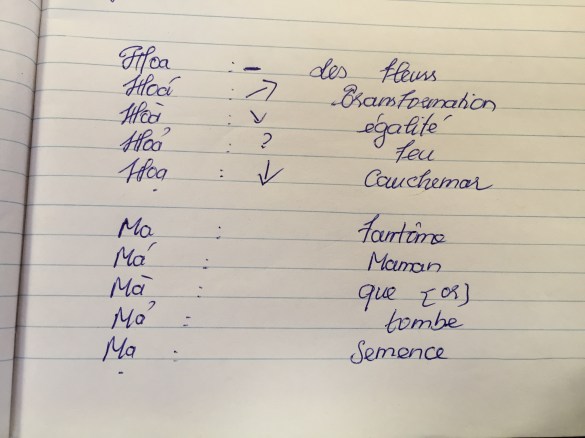 Hoa : – des fleurs
Hoá : ↗ transformation
Hoà : ↘ égalité
Hoả : ? feu
Hoạ : ↓ Cauchemar
Ma : fantôme
Má : Maman
Mà : que [or]
Mả : tombe
Mạ : Semence